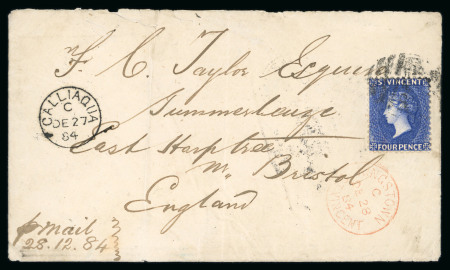 F. C. Taylor Esquire
Summerleaze
East Harptree
Nr. Bristol
England
CALLIAQUA
C
DE 27
84
ST VINCENT
FOUR PENCE
KINGSTOWN
C
DE 28
84
ST VINCENT
p mail
28.12.84